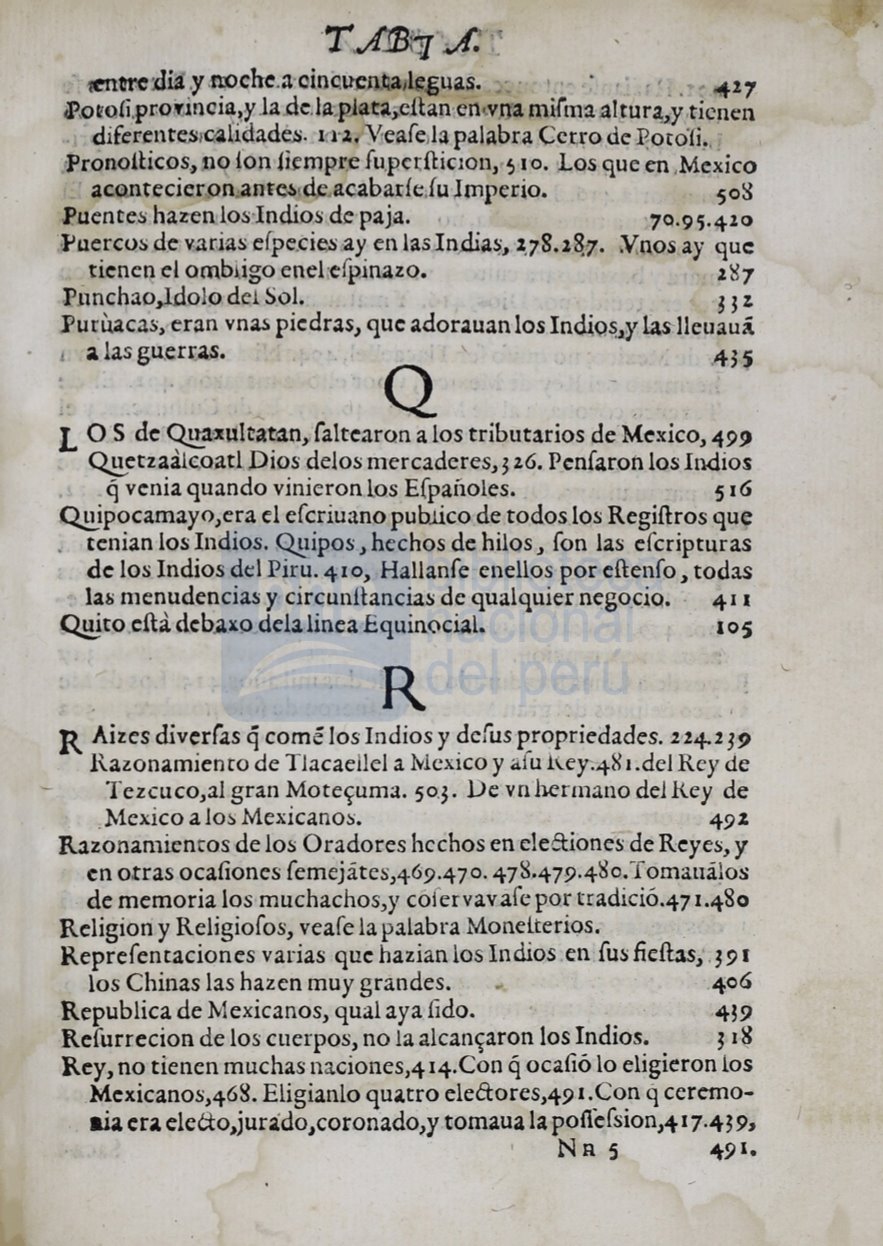 TABLA.
entre dia y noche a cincuenta leguas. 427
Potosi prouincia, y la de la plata, estan en vna misma altura, y tienen
diferentes calidades. 112. Vease la palabra Cerro de Potosi.
Pronosticos, no son siempre supersticion, 510. Los que en Mexico
acontecieron antes de acabarse su Imperio. 508
Puentes hazen los Indios de paja. 70.95.420
Puercos de varias especies ay en las Indias, 278.287. Vnos ay que
tienen el ombligo enel espinazo. 287
Punchao, Idolo del Sol. 332
Purùacas, eran vnas piedras, que adorauan los Indios, y las lleuauã
a las guerras. 435
Q
LOS de Quaxultatan, saltearon a los tributarios de Mexico, 499
Quetzaàlcoatl Dios delos mercaderes, 326. Pensaron los Indios
q̃ venia quando vinieron los Españoles. 516
Quipocamayo, era el escriuano publico de todos los Registros que
tenian los Indios. Quipos, hechos de hilos, son las escripturas
de los Indios del Piru. 410, Hallanse enellos por estenso, todas
las menudencias y circunstancias de qualquier negocio. 411
Quito està debaxo dela linea Equinocial. 105
nacional
del perú
R
RAizes diversas q̃ comẽ los Indios y desus propriedades. 224.239
Razonamiento de Tlacaellel a Mexico y asu Rey. 481. del Rey de
Tezcuco, al gran Moteçuma. 503. De vn hermano del Rey de
Mexico a los Mexicanos. 492
Razonamientos de los Oradores hechos en electiones de Reyes, y
en otras ocasiones semejãtes, 469.470. 478.479.480. Tomauãlos
de memoria los muchachos, y coservavase por tradició. 471.480
Religion y Religiosos, vease la palabra Monesterios.
Representaciones varias que hazian los Indios en sus fiestas, 391
los Chinas las hazen muy grandes. 406
Republica de Mexicanos, qual aya sido. 439
Resurrecion de los cuerpos, no la alcançaron los Indios. 318
Rey, no tienen muchas naciones, 414. Con q̃ ocasió lo eligieron los
Mexicanos, 468. Eligianlo quatro electores, 491. Con q ceremo-
nia era electo, jurado, coronado, y tomaua la possession, 417.439,
Nn 5 491.